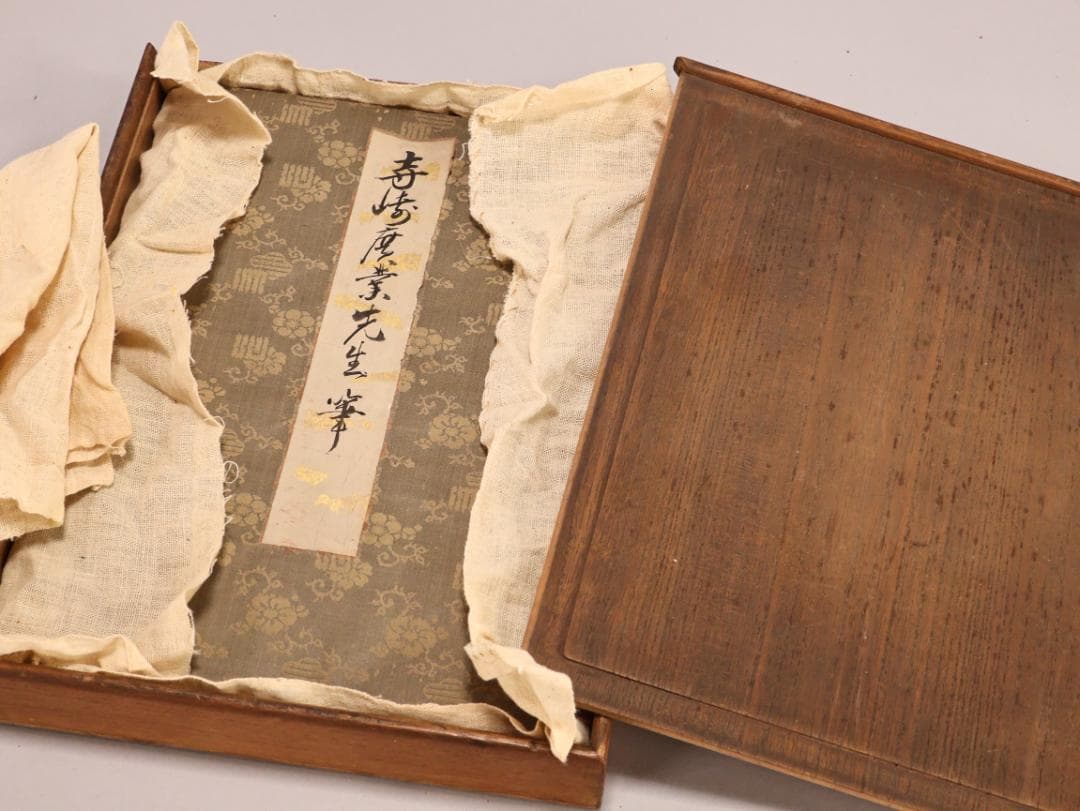 寺崎廣業先生筆